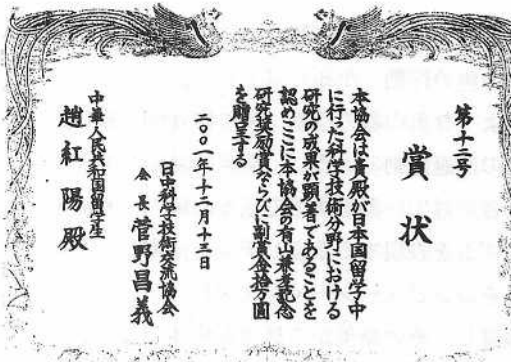 第十三号
賞状
本協会は貴殿が日本国留学中
に行った科学技術分野における
研究の成果が顕著であることを
認めここに本協会の有山兼孝記念
研究奨励賞ならびに副賞金拾万圓
を贈呈する
二〇〇一年十二月十三日
日中科学技術交流協会
会長 菅野昌義
中華人民共和国留学生
趙紅陽殿